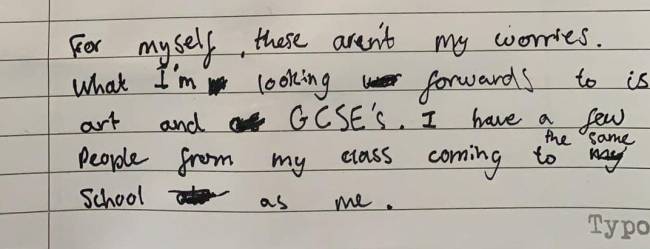 For myself, these aren't my worries.
What I'm looking forwards to is
art and GCSE's. I have a few
People from my class coming to the same
School as me.
Typo